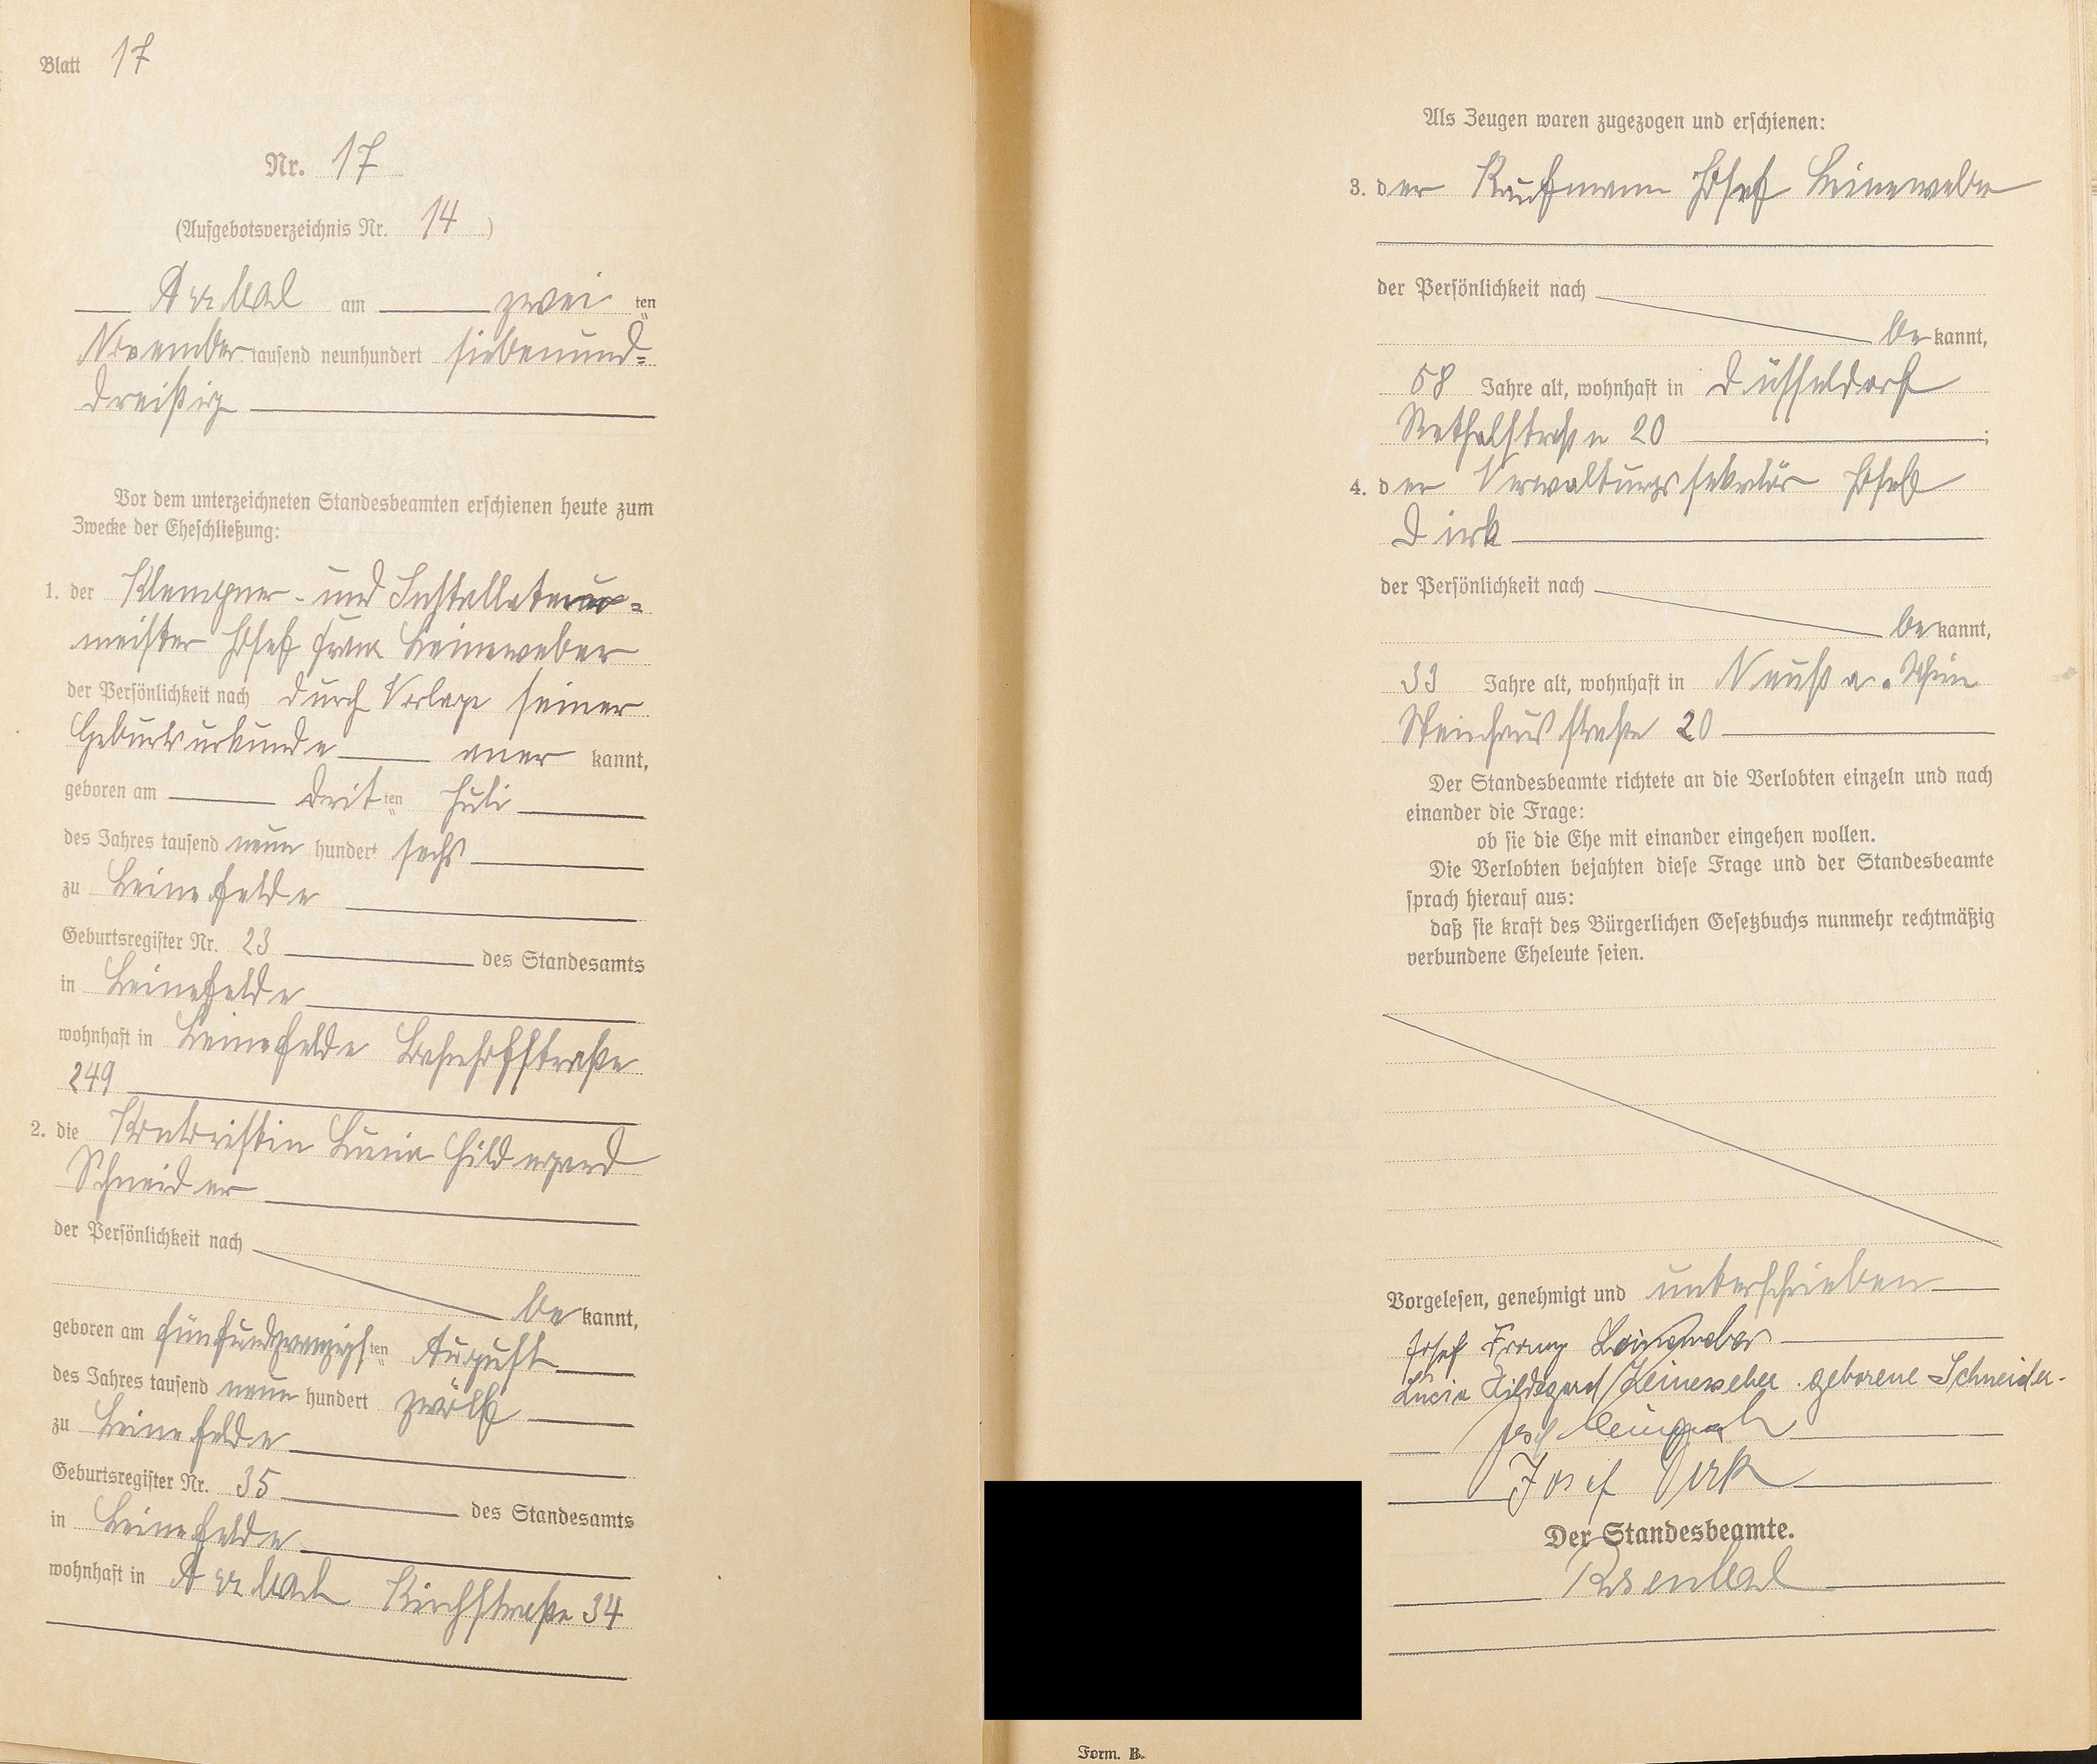 Blatt 17
Nr. 17
(Aufgebotsverzeichnis Nr. 14 )
am zwei ten
November tausend neunhundert siebenund=
dreißig
Vor dem unterzeichneten Standesbeamten erschienen heute zum
Zwecke der Eheschließung:
1. der Klempner- und Installateur=
meister Josef Franz Leineweber
der Persönlichkeit nach durch Vorlage seiner
Geburtsurkunde aner kannt,
geboren am drit ten Juli
des Jahres tausend neun hundert sechs
zu Leinefelde
Geburtsregister Nr. 23 des Standesamts
in Leinefelde
wohnhaft in Leinefelde Bahnhofstraße
249
2. die Kontoristin Lucia Hildegard
Schneider
der Persönlichkeit nach
be kannt,
geboren am fünfundzwanzigs ten August
des Jahres tausend neun hundert zwölf
zu Leinefelde
Geburtsregister Nr. 35 des Standesamts
in Leinefelde
wohnhaft in Kirchstraße 34
Als Zeugen waren zugezogen und erschienen:
3. der Kaufmann Josef Leineweber
der Persönlichkeit nach
be kannt,
58 Jahre alt, wohnhaft in Düsseldorf
Rethelstraße 20 ;
4. der Verwaltungssekretär Josef
Dirk
der Persönlichkeit nach
be kannt,
33 Jahre alt, wohnhaft in Neuß a. Rhein
Steinhausstraße 20
Der Standesbeamte richtete an die Verlobten einzeln und nach
einander die Frage:
ob sie die Ehe mit einander eingehen wollen.
Die Verlobten bejahten diese Frage und der Standesbeamte
sprach hierauf aus:
daß sie kraft des Bürgerlichen Gesetzbuchs nunmehr rechtmäßig
verbundene Eheleute seien.
Vorgelesen, genehmigt und unterschrieben
Josef Franz Leineweber
Lucia Hildegard Leineweber geborene Schneider.
Josef Dirk
Der Standesbeamte.
Form. B.